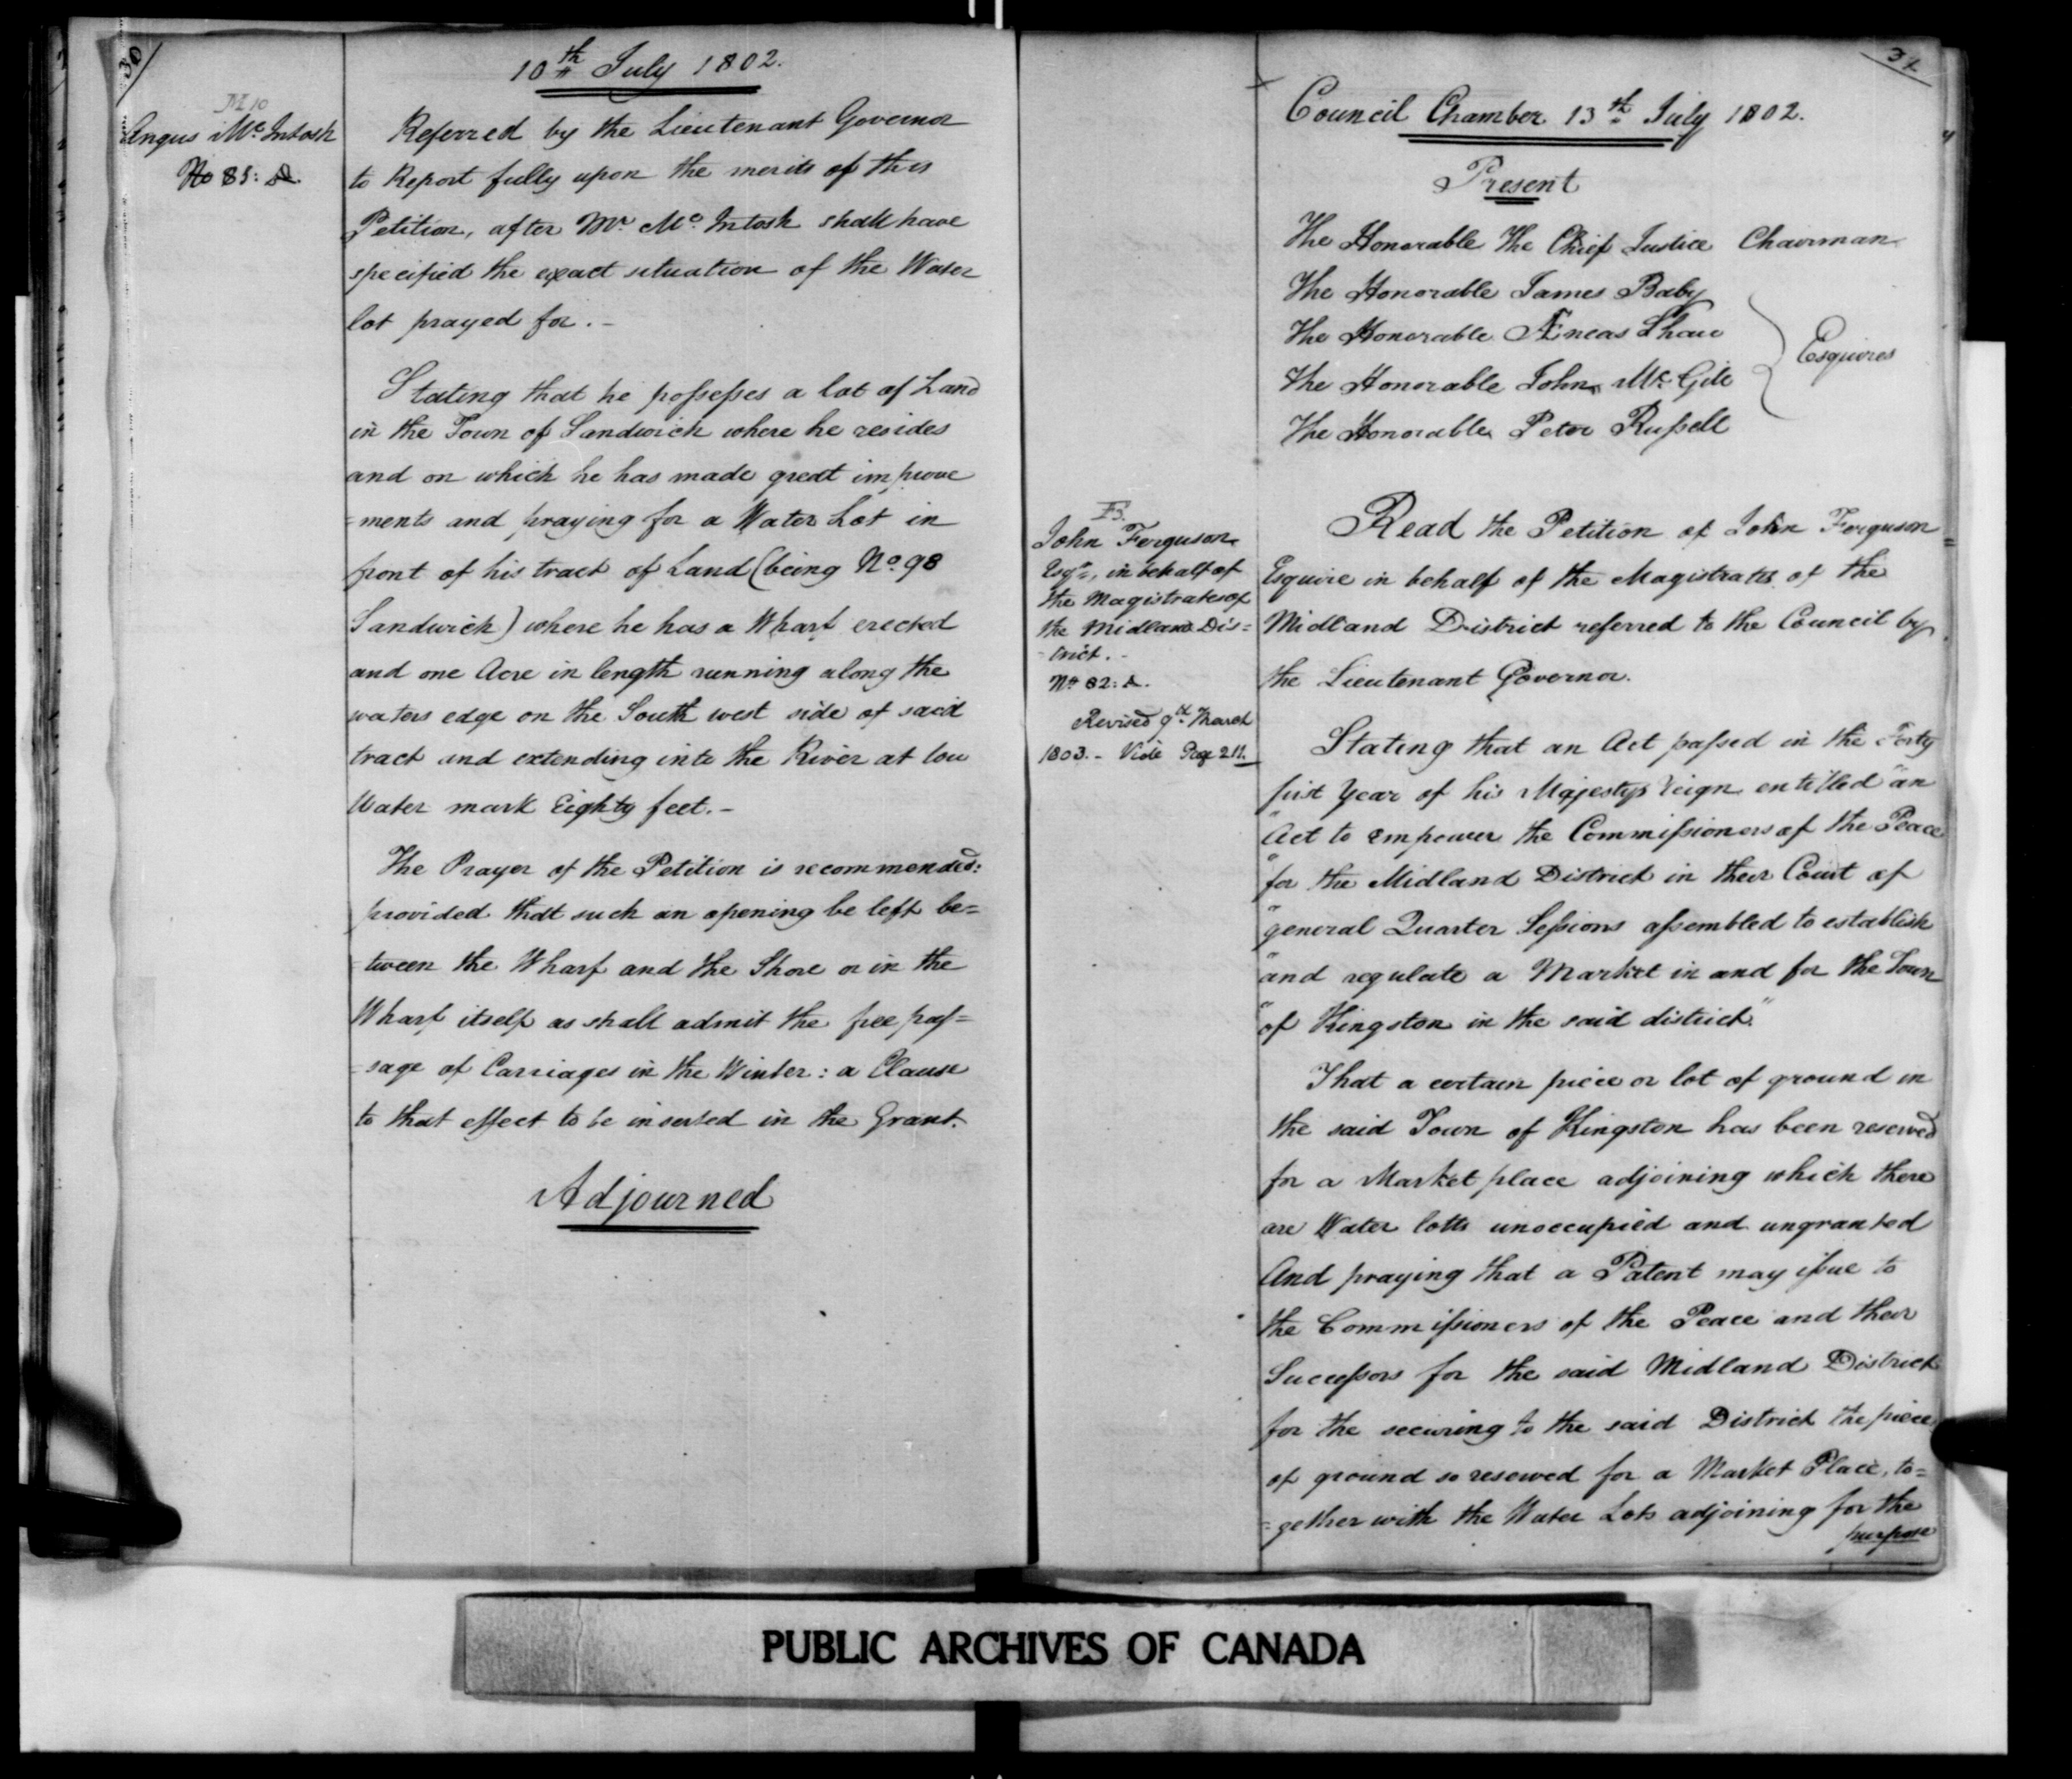 30
10th July 1802.
M 10
Angus Mc Intosh
No 85: D.
Referred by the Lieutenant Governor
to Report fully upon the merits of this
Petition, after Mr. Mc. Intosh shall have
specified the exact situation of the Water
lot prayed for. -
Stating that he possesses a lot of Land
in the Town of Sandwich where he resides
and on which he has made great improve
=ments and praying for a Water Lot in
front of his tract of Land (being No. 98
Sandwich) where he has a Wharf erected
and one Acre in length running along the
waters edge on the South west side of said
tract and extending into the River at low
Water mark Eighty feet. -
The Prayer of the Petition is recommended:
provided that such an opening be left be=
=tween the Wharf and the Shore or in the
Wharf itself as shall admit the free pas=
=sage of Carriages in the Winter: a Clause
to that effect to be inserted in the Grant.
Adjourned
Council Chamber 13th July 1802.
Present
The Honorable The Chief Justice Chairman
The Honorable James Baby
The Honorable Æneas Shaw
The Honorable John Mc Gill
The Honorable Peter Russell
Esquires
F3.
John Ferguson
Esqr., in behalf of
the Magistrates of
the Midland Dis=
=trict. -
No 82: D.
Revised 9th March
1803. - Vide Page 211.
Read the Petition of John Ferguson
Esquire in behalf of the Magistrates of the
Midland District referred to the Council by
the Lieutenant Governor.
Stating that an Act passed in the Forty
first Year of his Majestys reign entitled "an
"Act to empower the Commissioners of the Peace
"for the Midland District in their Court of
"general Quarter Sessions assembled to establish
"and regulate a Market in and for the Town
"of Kingston in the said district."
That a certain piece or lot of ground in
the said Town of Kingston has been reserved
for a Market place adjoining which there
are Water lotts unoccupied and ungranted
And praying that a Patent may issue to
the Commissioners of the Peace and their
Successors for the said Midland District
for the securing to the said District the piece
of ground so reserved for a Market Place, to=
=gether with the Water Lots adjoining for the
purpose
PUBLIC ARCHIVES OF CANADA